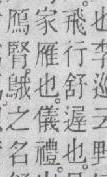 也李巡云野
飛行舒遲也
家雁也儀禮
腎之名